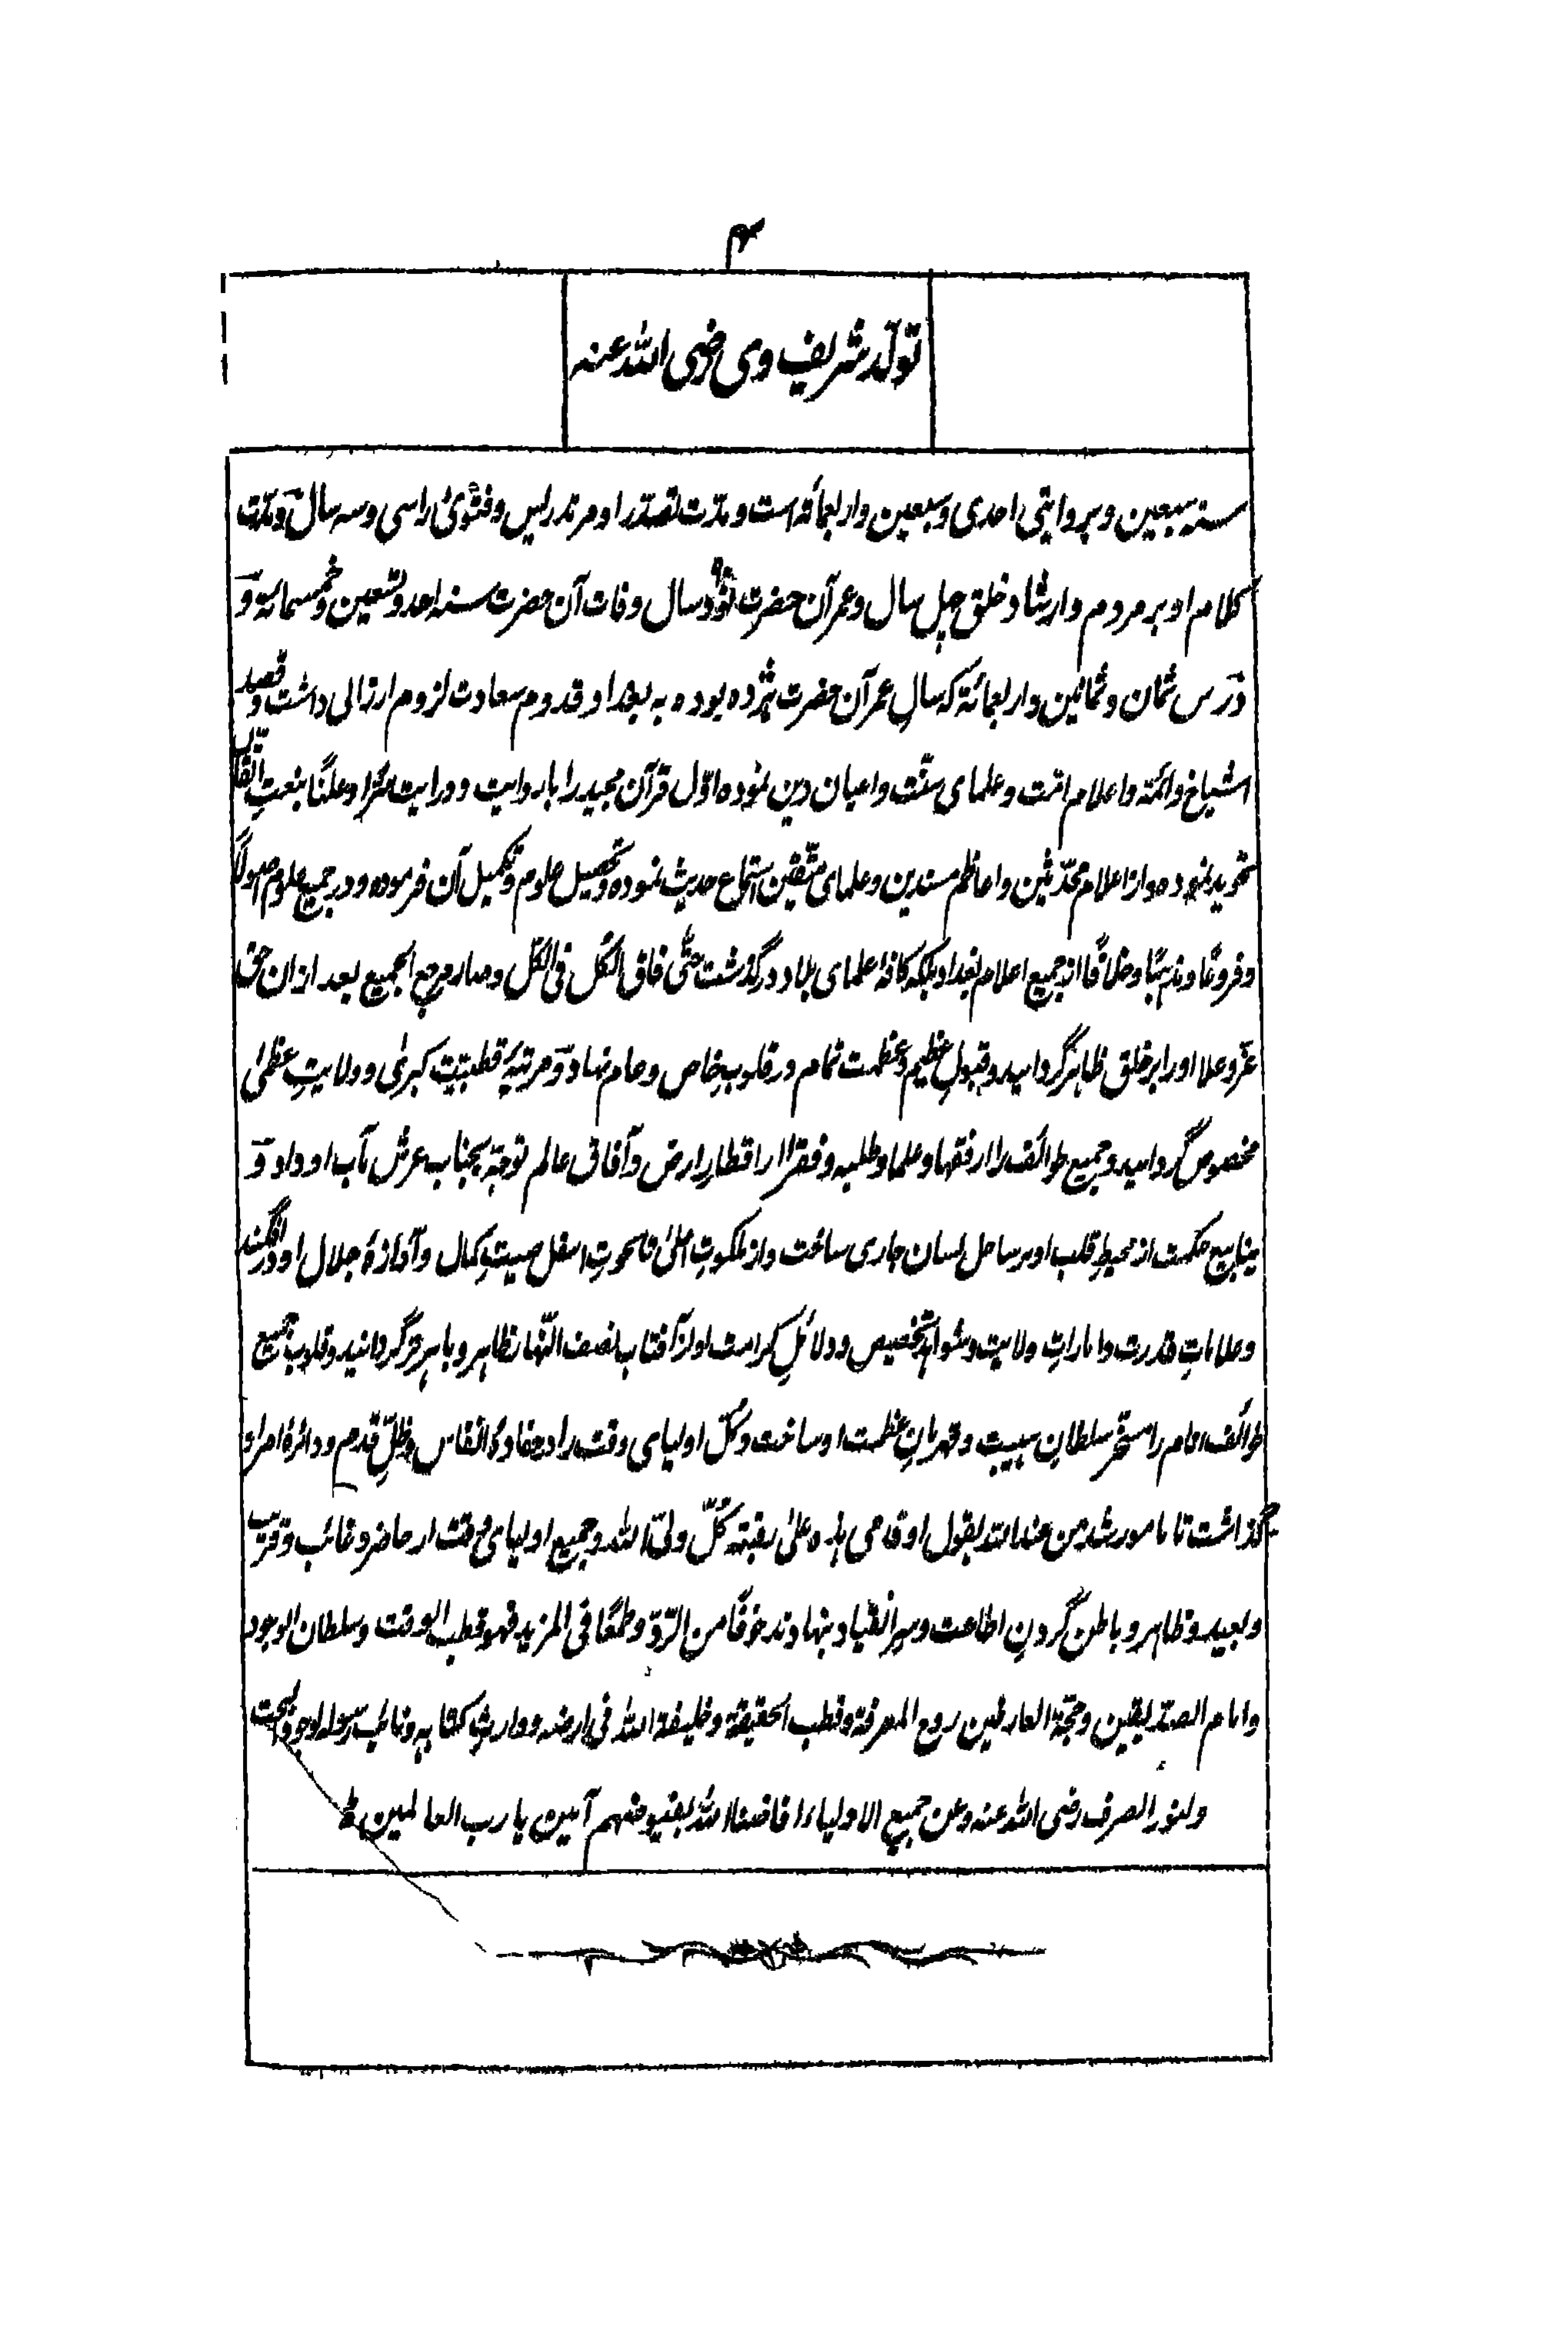 ۴
تولّد شریف وی رضی الله عنه
سنه سبعین و بروایتی احدی و سبعین و اربعمائة است و مدّت تصدّر او مر تدریس و فتوی را سی و سه سال و مدّت
کلام او بر مردم و ارشاد خلق چهل سال و عمر آن حضرت نود سال وفات آن حضرت سنه احد و ستعین و خمسمائة و
در سن ثمان و ثمانین و اربعمائة که سال عمر آن حضرت هژده بوده به بغداد قدوم سعادت لزوم ارزانی داشت و قصد
اشیاخ و ائمّه و اعلام امّت و علمای سنّت و اعیان دین نموده اوّل قرآن مجید را با روایت و درایت سرًّا و علنًا بنعتِ اتقان
تجوید نموده و از اعلام محدّثین و اعاظم مسندین و علمای متّقین استماع حدیث نموده و تحصیل علوم و تکمیل آن فرموده و در جمیع علوم اصولًا
و فروعًا و مذهبًا و خلافًا از جمیع اعلام بغداد بلکه کافۀ علمای بلاد در گذشت حتّی فاق الکل فی الکل و صار مرجع الجمیع بعد ازان حق
عزّ و علا او را بر خلق ظاهر گردانید و قبولِ عظیم و عظمت تمام در قلوبِ خاص و عام نهاد و مرتبۀ قطبیّت کبری و ولایتِ عظمی
مخصوص گردانید و جمیع طوائف را از فقها و علما و طلبه و فقرا از اقطارِ ارض و آفاق عالم توجّه بجناب عرش مآب او داد و
ینابیع حکمت از محیطِ قلب او بر ساحل لسان جاری ساخت و از ملکوتِ اعلی تا تحوتِ اسفل صیتِ کمال و آوازۀ جلال او در افگند
و علاماتِ قدرت و اماراتِ ولایت و شواهد تخصیص و دلائلِ کرامت او از آفتاب نصف النّهار ظاهر و باهر تر گردانید و قلوب جمیع
طوائف انام را مسخّر سلطانِ هیبت و قهرمانِ عظمت او ساخت و کلّ اولیای وقت را در انفاس و ظلِّ قدم و دائرۀ امر او
گذاشت تا مامور شد من عند الله بقول او قدمی هذه علی رقبة کلّ ولیّ الله و جمیع اولیای وقت از حاضر و غائب و قریب
و بعید و ظاهر و باطن گردنِ اطاعت و سرِ انقیاد بنهادند خوفًا من الرّدّ و طمعًا فی المزید فهو قطب الوقت و سلطان الوجود
و امام الصدّیقین و حجّة العارفین روح المعرفة و قطب الحقیقة و خلیفة الله فی ارضه و وارث کتابه و نائب رسوله الوجود البحت
و النور الصرف رضی الله عنه و عن جمیع الاولیاء افاضنا الله بفیوضهم آمین یا رب العالمین